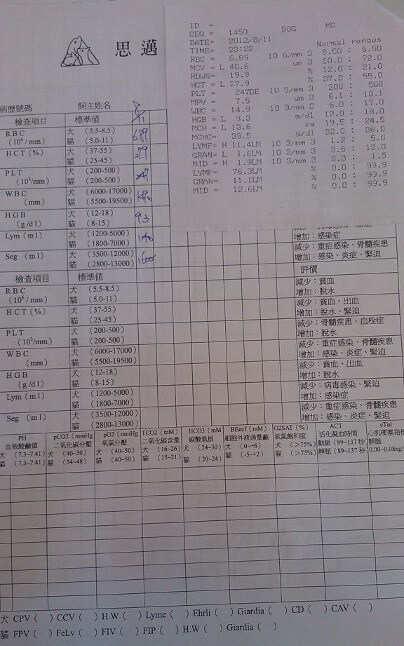 思邁
病歷號碼 飼主姓名
檢查項目 標準值
RBC 犬 (5.5-8.5)
(10⁶/mm) 貓 (5.0-11)
HCT (%) 犬 (37-55)
貓 (25-45)
PLT 犬 (200-500)
(10³/mm) 貓 (200-500)
WBC 犬 (6000-17000)
(mm) 貓 (5500-19500)
HGB 犬 (12-18)
(g/dl) 貓 (8-15)
Lym (ml) 犬 (1200-5000)
貓 (1800-7000)
Seg (ml) 犬 (3500-12000)
貓 (2800-13000)
ID =
SEQ = 1450 DOG MC
DATE= 2012/3/11
TIME= 20:22 Normal ranges
RBC = 6.89 10 6/mm 3 5.50 : 8.50
MCV = L 40.6 um 3 60.0 : 72.0
RDW= 19.9 % 12.0 : 21.0
HCT = L 27.9 % 37.0 : 55.0
PLT = 247DE 10 3/mm 3 200 : 500
MPV = 7.5 um 3 6.1 : 10.1
WBC = 14.9 10 3/mm 3 6.0 : 17.0
HGB = L 9.3 g/dl 12.0 : 18.0
MCH = L 13.6 19.5 : 24.5
MCHC= 33.5 g/dl 32.0 : 38.0
LYMF= H 11.4LM 10 3/mm 3 1.2 : 5.0
GRAN= L 1.6LM 10 3/mm 3 3.5 : 12.0
MID = H 1.9LM 10 3/mm 3 0.3 : 1.5
LYMF= 76.3LM % 0.0 : 99.9
GRAN= 11.1LM % 0.0 : 99.9
MID = 12.6LM % 0.0 : 99.9
增加：感染症
減少：重症感染、骨髓疾患
增加：感染、炎症、緊迫
檢查項目 標準值 評價
RBC 犬 (5.5-8.5) 減少：貧血
(10⁶/mm) 貓 (5.0-11) 增加：脫水
HCT (%) 犬 (37-55) 減少：貧血、出血
貓 (25-45) 增加：脫水、緊迫
PLT 犬 (200-500) 減少：骨髓疾患、血栓症
(10³/mm) 貓 (200-500) 增加：脫水
WBC 犬 (6000-17000) 減少：重症感染、骨髓疾患
(mm) 貓 (5500-19500) 增加：感染、炎症、緊迫
HGB 犬 (12-18) 減少：貧血、出血
(g/dl) 貓 (8-15) 增加：脫水
Lym (ml) 犬 (1200-5000) 減少：病毒感染、緊迫
貓 (1800-7000) 增加：感染症
Seg (ml) 犬 (3500-12000) 減少：重症感染、骨髓疾患
貓 (2800-13000) 增加：感染、炎症、緊迫
PH pCO2 (mmHg) pO2 (mmHg) TCO2 (mM) HCO3 (mM) BEecf (mM) O2SAT (%) ACT
血液酸鹼值 二氧化碳分壓 氧氣分壓 二氧化碳含量 碳酸氫根 細胞外液過量鹼 氧氣飽和度 活化凝血時間
犬 (7.3-7.41) 犬 (40-50) 犬 (40-50) 犬 (16-26) 犬 (24-30) 犬 (0~+6) 犬 (>75%)
貓 (7.3-7.41) 貓 (34-48) 貓 (40-50) 貓 (15-21) 貓 (20-24) 貓 (-5~+2) 貓 (>75%)
犬 CPV ( ) CCV ( ) H.W ( ) Lyme ( ) Ehrli ( ) Giardia ( ) CD ( ) CAV ( )
貓 FPV ( ) FeLv ( ) FIV ( ) FIP ( ) H.W ( ) Giardia ( )